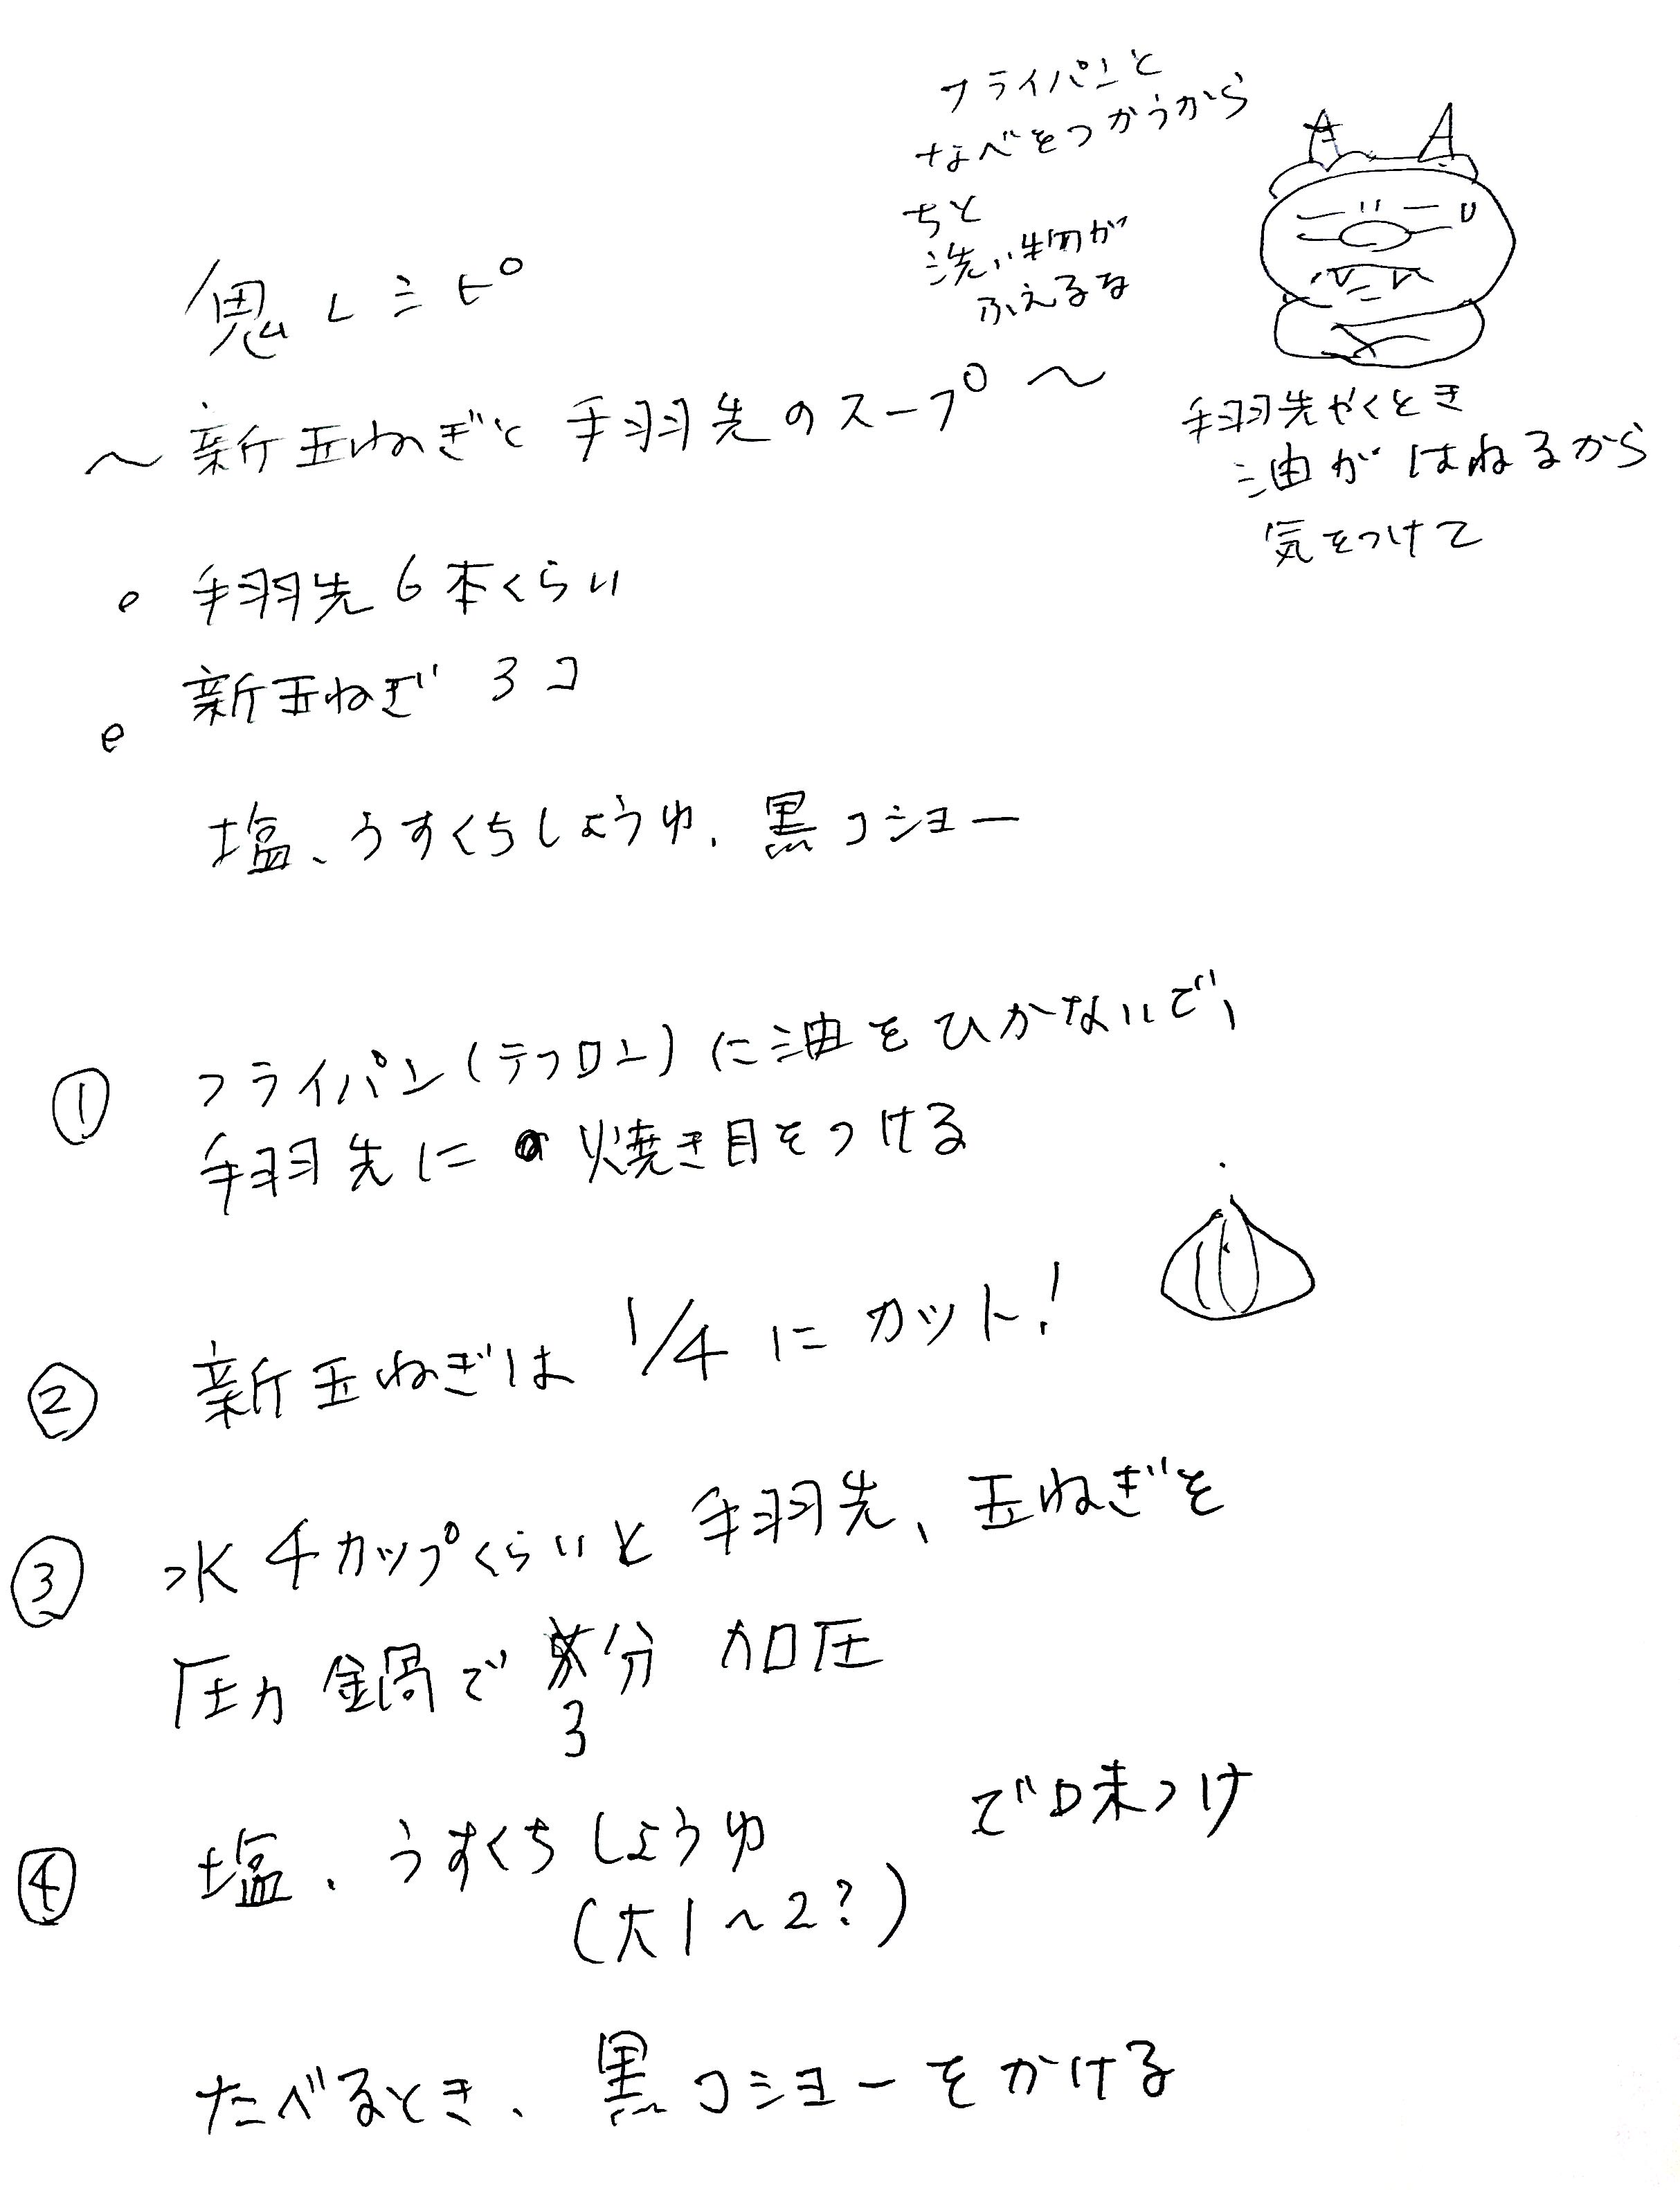 フライパンと
なべをつかうから
ちと
洗い物が
ふえるな
鬼レシピ
〜新玉ねぎと手羽先のスープ〜
手羽先やくとき
油がはねるから
気をつけて
・手羽先6本くらい
・新玉ねぎ 3コ
塩、うすくちしょうゆ、黒コショー
① フライパン(テフロン)に油をひかないで、
手羽先に焼き目をつける
② 新玉ねぎは 1/4 にカット!
③ 水4カップくらいと手羽先、玉ねぎを
圧力鍋で 分 加圧
3
④ 塩、うすくちしょうゆ で味つけ
(大1〜2?)
たべるとき、黒コショーをかける